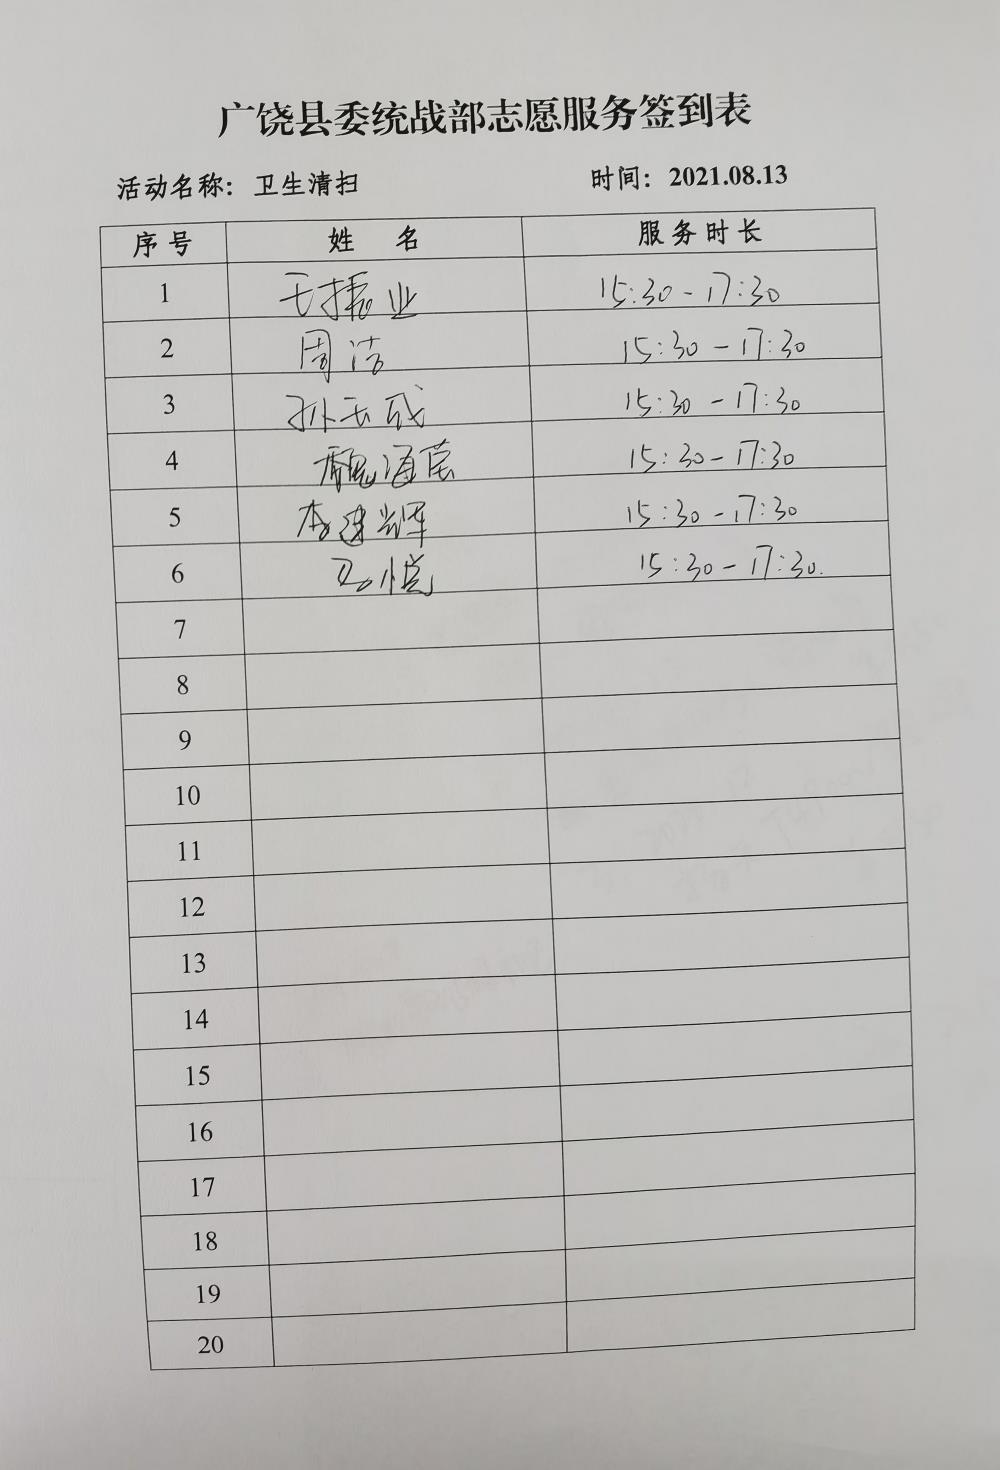 广饶县委统战部志愿服务签到表
活动名称：卫生清扫 时间：2021.08.13
序号 姓 名 服务时长
1 王振业 15:30-17:30
2 周洁 15:30-17:30
3 孙玉成 15:30-17:30
4 魏海燕 15:30-17:30
5 李建辉 15:30-17:30
6 马悦 15:30-17:30.
7
8
9
10
11
12
13
14
15
16
17
18
19
20